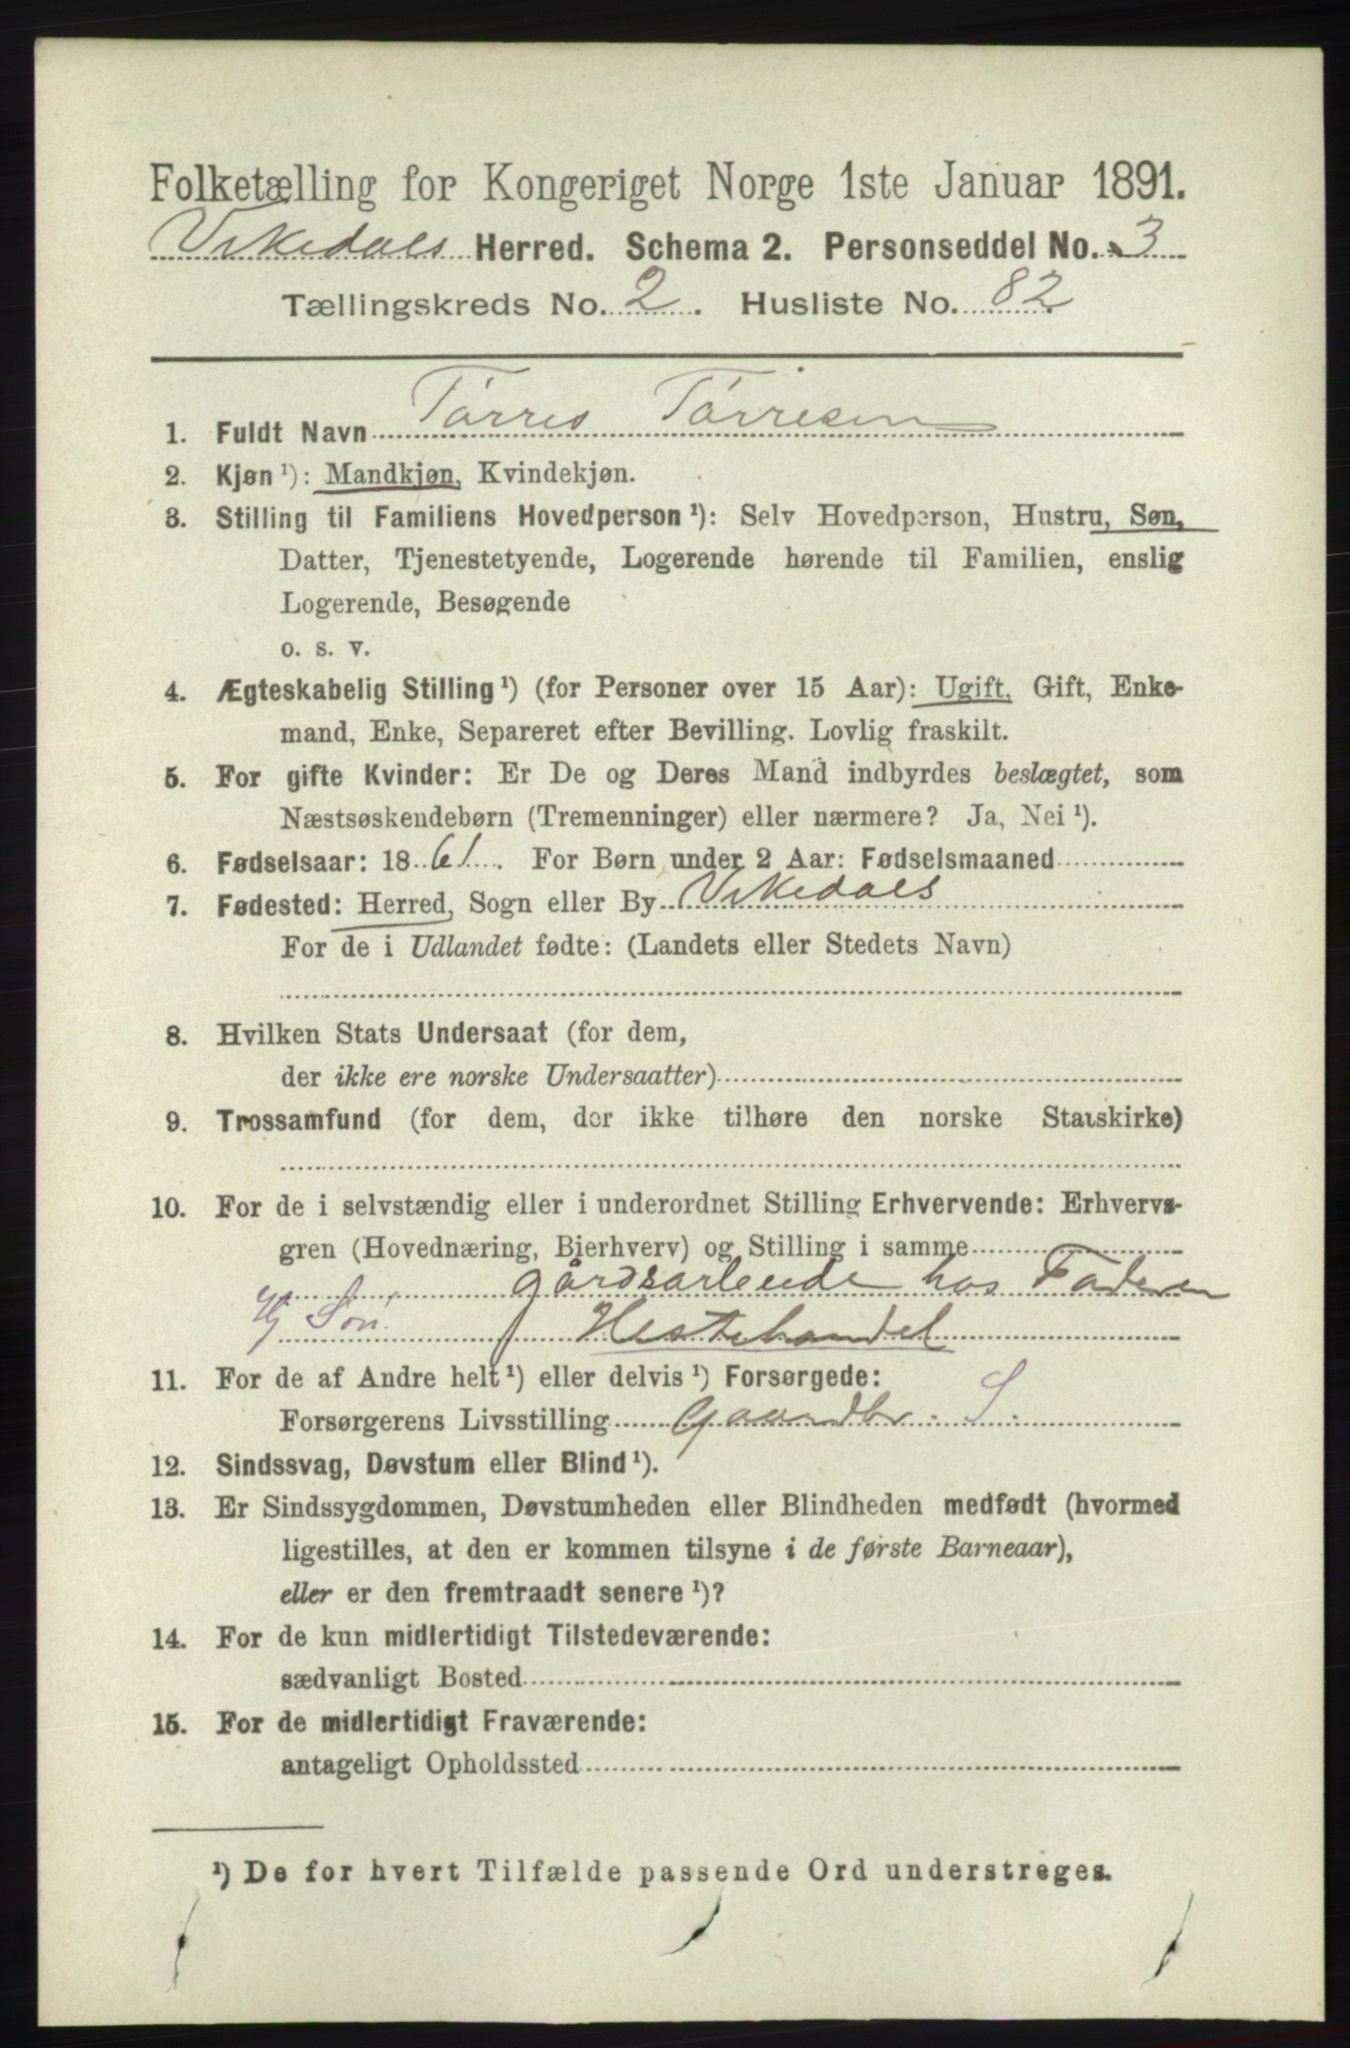 Folketælling for Kongeriget Norge 1ste Januar 1891.
Vikedals Herred. Schema 2. Personseddel No. 3
Tællingskreds No. 2. Husliste No. 82
1. Fuldt Navn Tørres Tørresen
2. Kjøn¹): Mandkjøn, Kvindekjøn.
3. Stilling til Familiens Hovedperson¹): Selv Hovedperson, Hustru, Søn,
Datter, Tjenestetyende, Logerende hørende til Familien, enslig
Logerende, Besøgende
o. s. v.
4. Ægteskabelig Stilling¹) (for Personer over 15 Aar): Ugift, Gift, Enke-
mand, Enke, Separeret efter Bevilling. Lovlig fraskilt.
5. For gifte Kvinder: Er De og Deres Mand indbyrdes beslægtet, som
Næstsøskendebørn (Tremenninger) eller nærmere? Ja, Nei¹).
6. Fødselsaar: 1861. For Børn under 2 Aar: Fødselsmaaned
7. Fødested: Herred, Sogn eller By Vikedals
For de i Udlandet fødte: (Landets eller Stedets Navn)
8. Hvilken Stats Undersaat (for dem,
der ikke ere norske Undersaatter)
9. Trossamfund (for dem, der ikke tilhøre den norske Statskirke)
10. For de i selvstændig eller i underordnet Stilling Erhvervende: Erhvervs-
gren (Hovednæring, Bierhverv) og Stilling i samme
gårdsarbeide hos Faderen
Hj Søn Hestehandel
11. For de af Andre helt¹) eller delvis¹) Forsørgede:
Forsørgerens Livsstilling Gaardbr. S.
12. Sindssvag, Døvstum eller Blind¹).
13. Er Sindssygdommen, Døvstumheden eller Blindheden medfødt (hvormed
ligestilles, at den er kommen tilsyne i de første Barneaar),
eller er den fremtraadt senere¹)?
14. For de kun midlertidigt Tilstedeværende:
sædvanligt Bosted
15. For de midlertidigt Fraværende:
antageligt Opholdssted
¹) De for hvert Tilfælde passende Ord understreges.